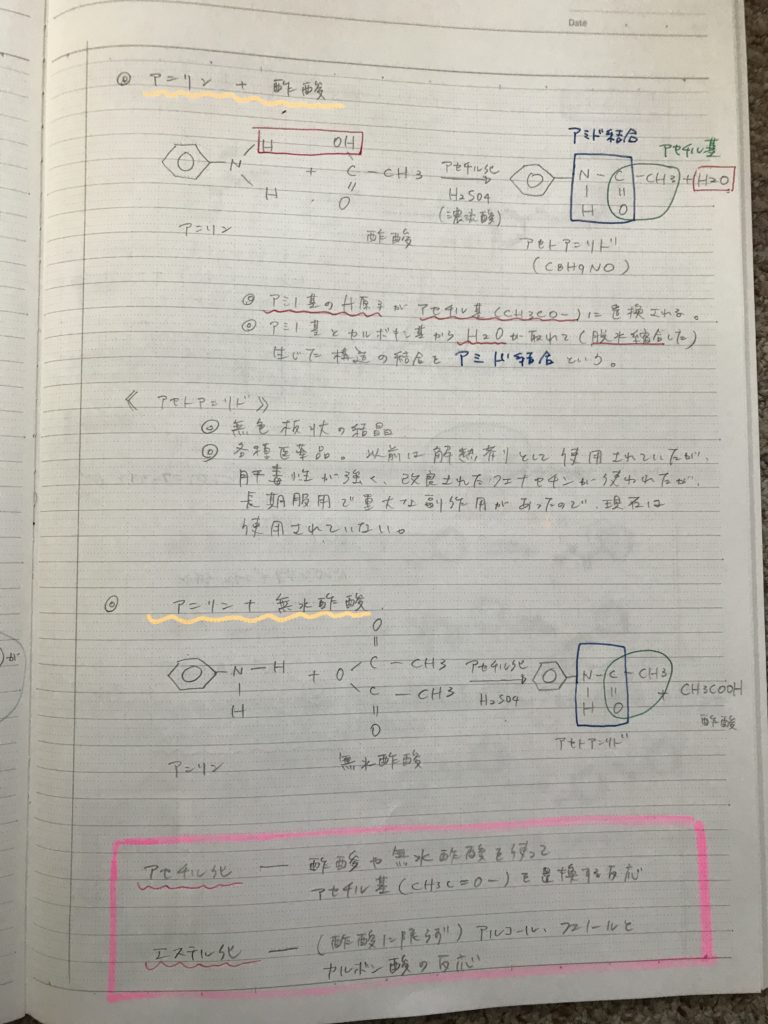 Date
◎ アニリン + 酢酸
アミド結合
アセチル基
H OH
N + C - CH3 アセチル化 N - C - CH3 + H2O
H O H2SO4 H O
(濃硫酸)
アニリン 酢酸 アセトアニリド
(C8H9NO)
◎ アミノ基のH原子が アセチル基(CH3CO-)に置換される。
◎ アミノ基とカルボキシ基から H2Oが取れて(脱水縮合した)
生じた構造の結合を アミド結合 という。
《 アセトアニリド 》
◎ 無色板状の結晶
◎ 各種医薬品。以前は解熱剤として使用されていたが、
肝毒性が強く、改良されたフェナセチンが使われたが、
長期服用で重大な副作用があったので、現在は
使用されていない。
◎ アニリン + 無水酢酸
O
N - H + O C - CH3 アセチル化 N - C - CH3
H C - CH3 H2SO4 H O + CH3COOH
O 酢酸
アニリン 無水酢酸 アセトアニリド
アセチル化 ― 酢酸や無水酢酸を使って
アセチル基(CH3C=O-)を置換する反応
エステル化 ― (酢酸に限らず) アルコール、フェノールと
カルボン酸の反応